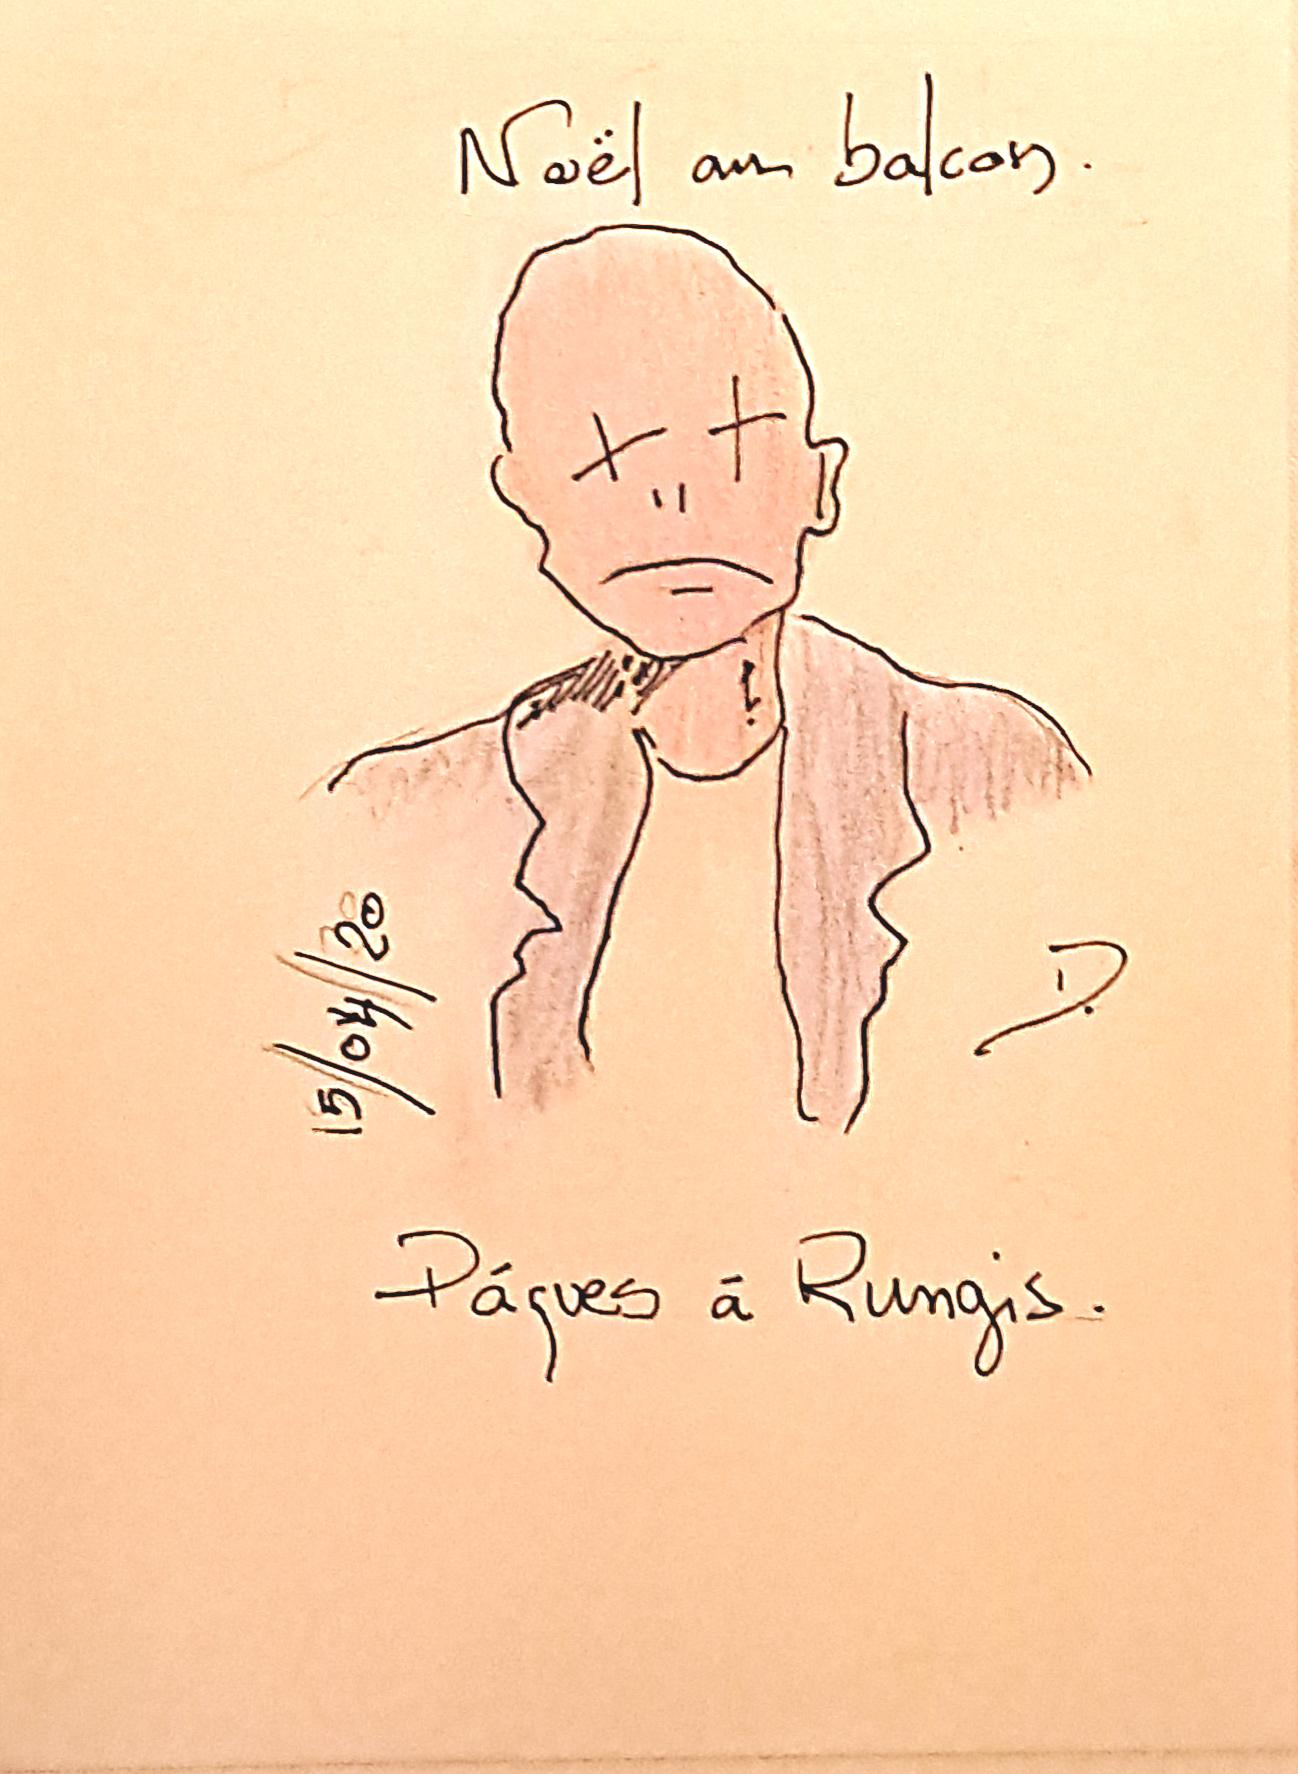 Noël au balcon.
15/04/20
D.
Pâques à Rungis.